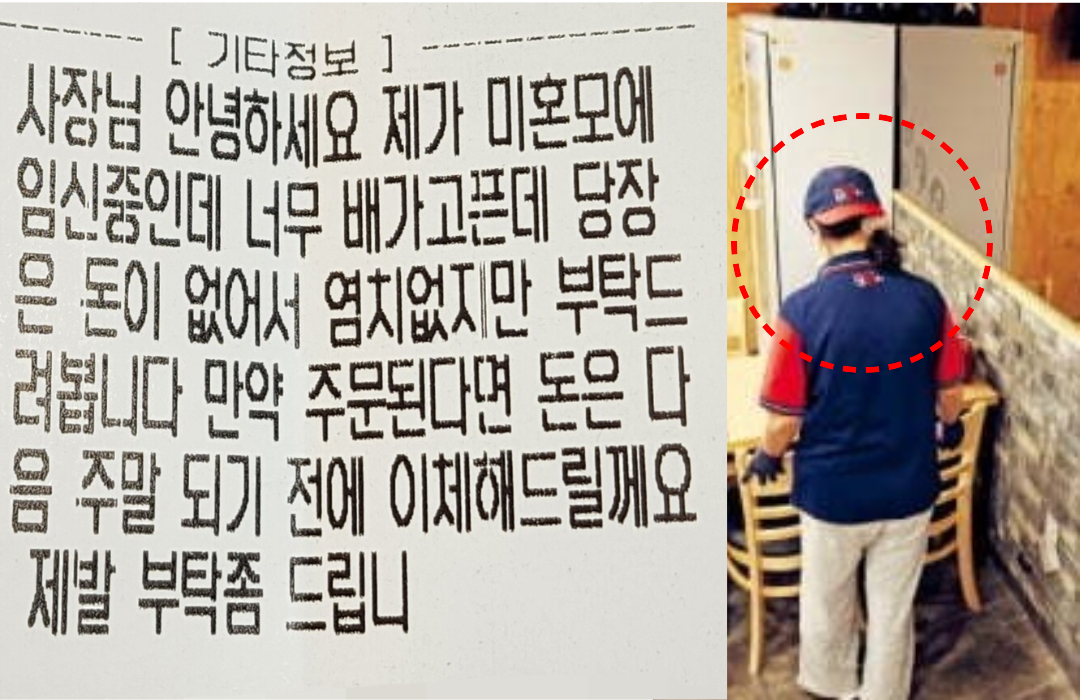 [ 기타정보 ]
사장님 안녕하세요 제가 미혼모에
임신중인데 너무 배가고픈데 당장
은 돈이 없어서 염치없지만 부탁드
려봅니다 만약 주문된다면 돈은 다
음 주말 되기 전에 이체해드릴께요
제발 부탁좀 드립니